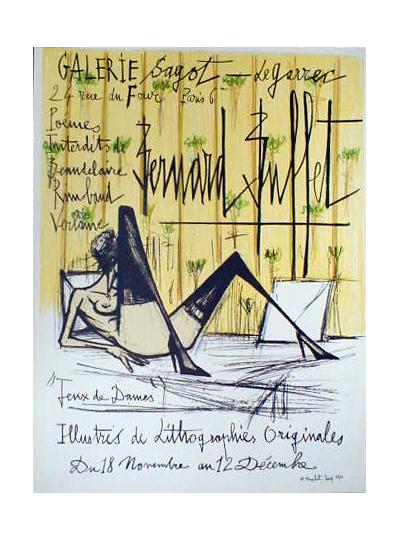 GALERIE Sagot – Le Garrec
24 rue du Four Paris 6e
Poèmes
Interdits de
Beaudelaire
Rimbaud
Verlaine
Bernard Buffet
"Jeux de Dames"
Illustrés de Lithographies Originales
Du 18 Novembre au 12 Décembre